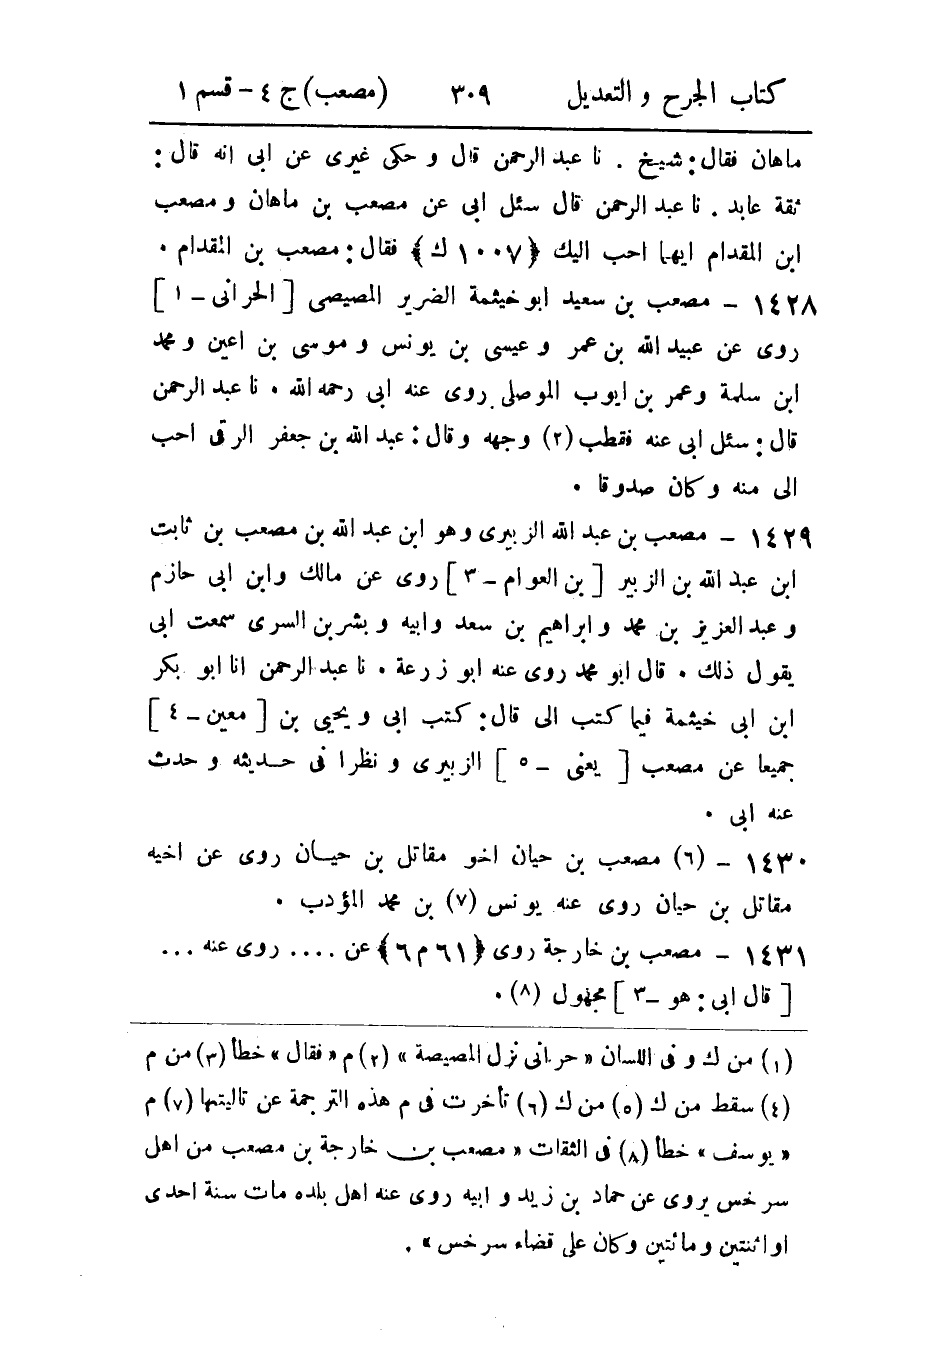 كتاب الجرح و التعديل ٣٠٩ (مصعب) ج ٤ - قسم ١
ماهان فقال: شيخ . نا عبد الرحمن قال و حكى غيرى عن ابى انه قال:
ثقة عابد . نا عبد الرحمن قال سئل ابى عن مصعب بن ماهان و مصعب
ابن المقدام ايهما احب اليك ﴿١٠٠٧ ك﴾ فقال: مصعب بن المقدام .
١٤٢٨ - مصعب بن سعيد ابو خيثمة الضرير المصيصى [ الحرانى - ١ ]
روى عن عبيد الله بن عمر و عيسى بن يونس و موسى بن اعين و محمد
ابن سلمة وعمر بن ايوب الموصلى روى عنه ابى رحمه الله . نا عبد الرحمن
قال: سئل ابى عنه فقطب (٢) وجهه وقال: عبد الله بن جعفر الرقى احب
الى منه وكان صدوقا .
١٤٢٩ - مصعب بن عبد الله الزبيرى وهو ابن عبد الله بن مصعب بن ثابت
ابن عبد الله بن الزبير [ بن العوام - ٣ ] روى عن مالك وابن ابى حازم
و عبد العزيز بن محمد و ابراهيم بن سعد وابيه و بشر بن السرى سمعت ابى
يقول ذلك . قال ابو محمد روى عنه ابو زرعة . نا عبد الرحمن انا ابو بكر
ابن ابى خيثمة فيما كتب الى قال: كتب ابى و يحيى بن [ معين - ٤ ]
جميعا عن مصعب [ يعنى - ٥ ] الزبيرى و نظرا فى حديثه و حدث
عنه ابى .
١٤٣٠ - (٦) مصعب بن حيان اخو مقاتل بن حيان روى عن اخيه
مقاتل بن حيان روى عنه يونس (٧) بن محمد المؤدب .
١٤٣١ - مصعب بن خارجة روى ﴿٦١ م ٦﴾ عن .... روى عنه ...
[ قال ابى: هو - ٣ ] مجهول (٨) .
(١) من ك و فى اللسان «حرانى نزل المصيصة» (٢) م «فقال» خطأ (٣) من م
(٤) سقط من ك (٥) من ك (٦) تأخرت فى م هذه الترجمة عن تاليتها (٧) م
«يوسف» خطأ (٨) فى الثقات «مصعب بن خارجة بن مصعب من اهل
سرخس يروى عن حماد بن زيد و ابيه روى عنه اهل بلده مات سنة احدى
او اثنتين و مائتين وكان على قضاء سرخس» .